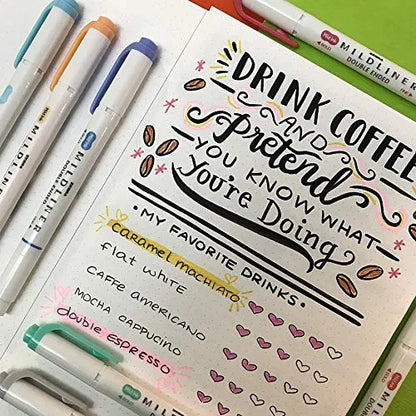 DRINK COFFEE
AND
Pretend
YOU KNOW WHAT
You're Doing
• MY FAVORITE DRINKS •
caramel mochiato
flat white
CAFFE AMERICANO
MOCHA CAPPUCINO
double ESPRESSO
MILDLINER
DOUBLE ENDED
MILDLINER
DOUBLE ENDED
MILDLINER
MILDLINER